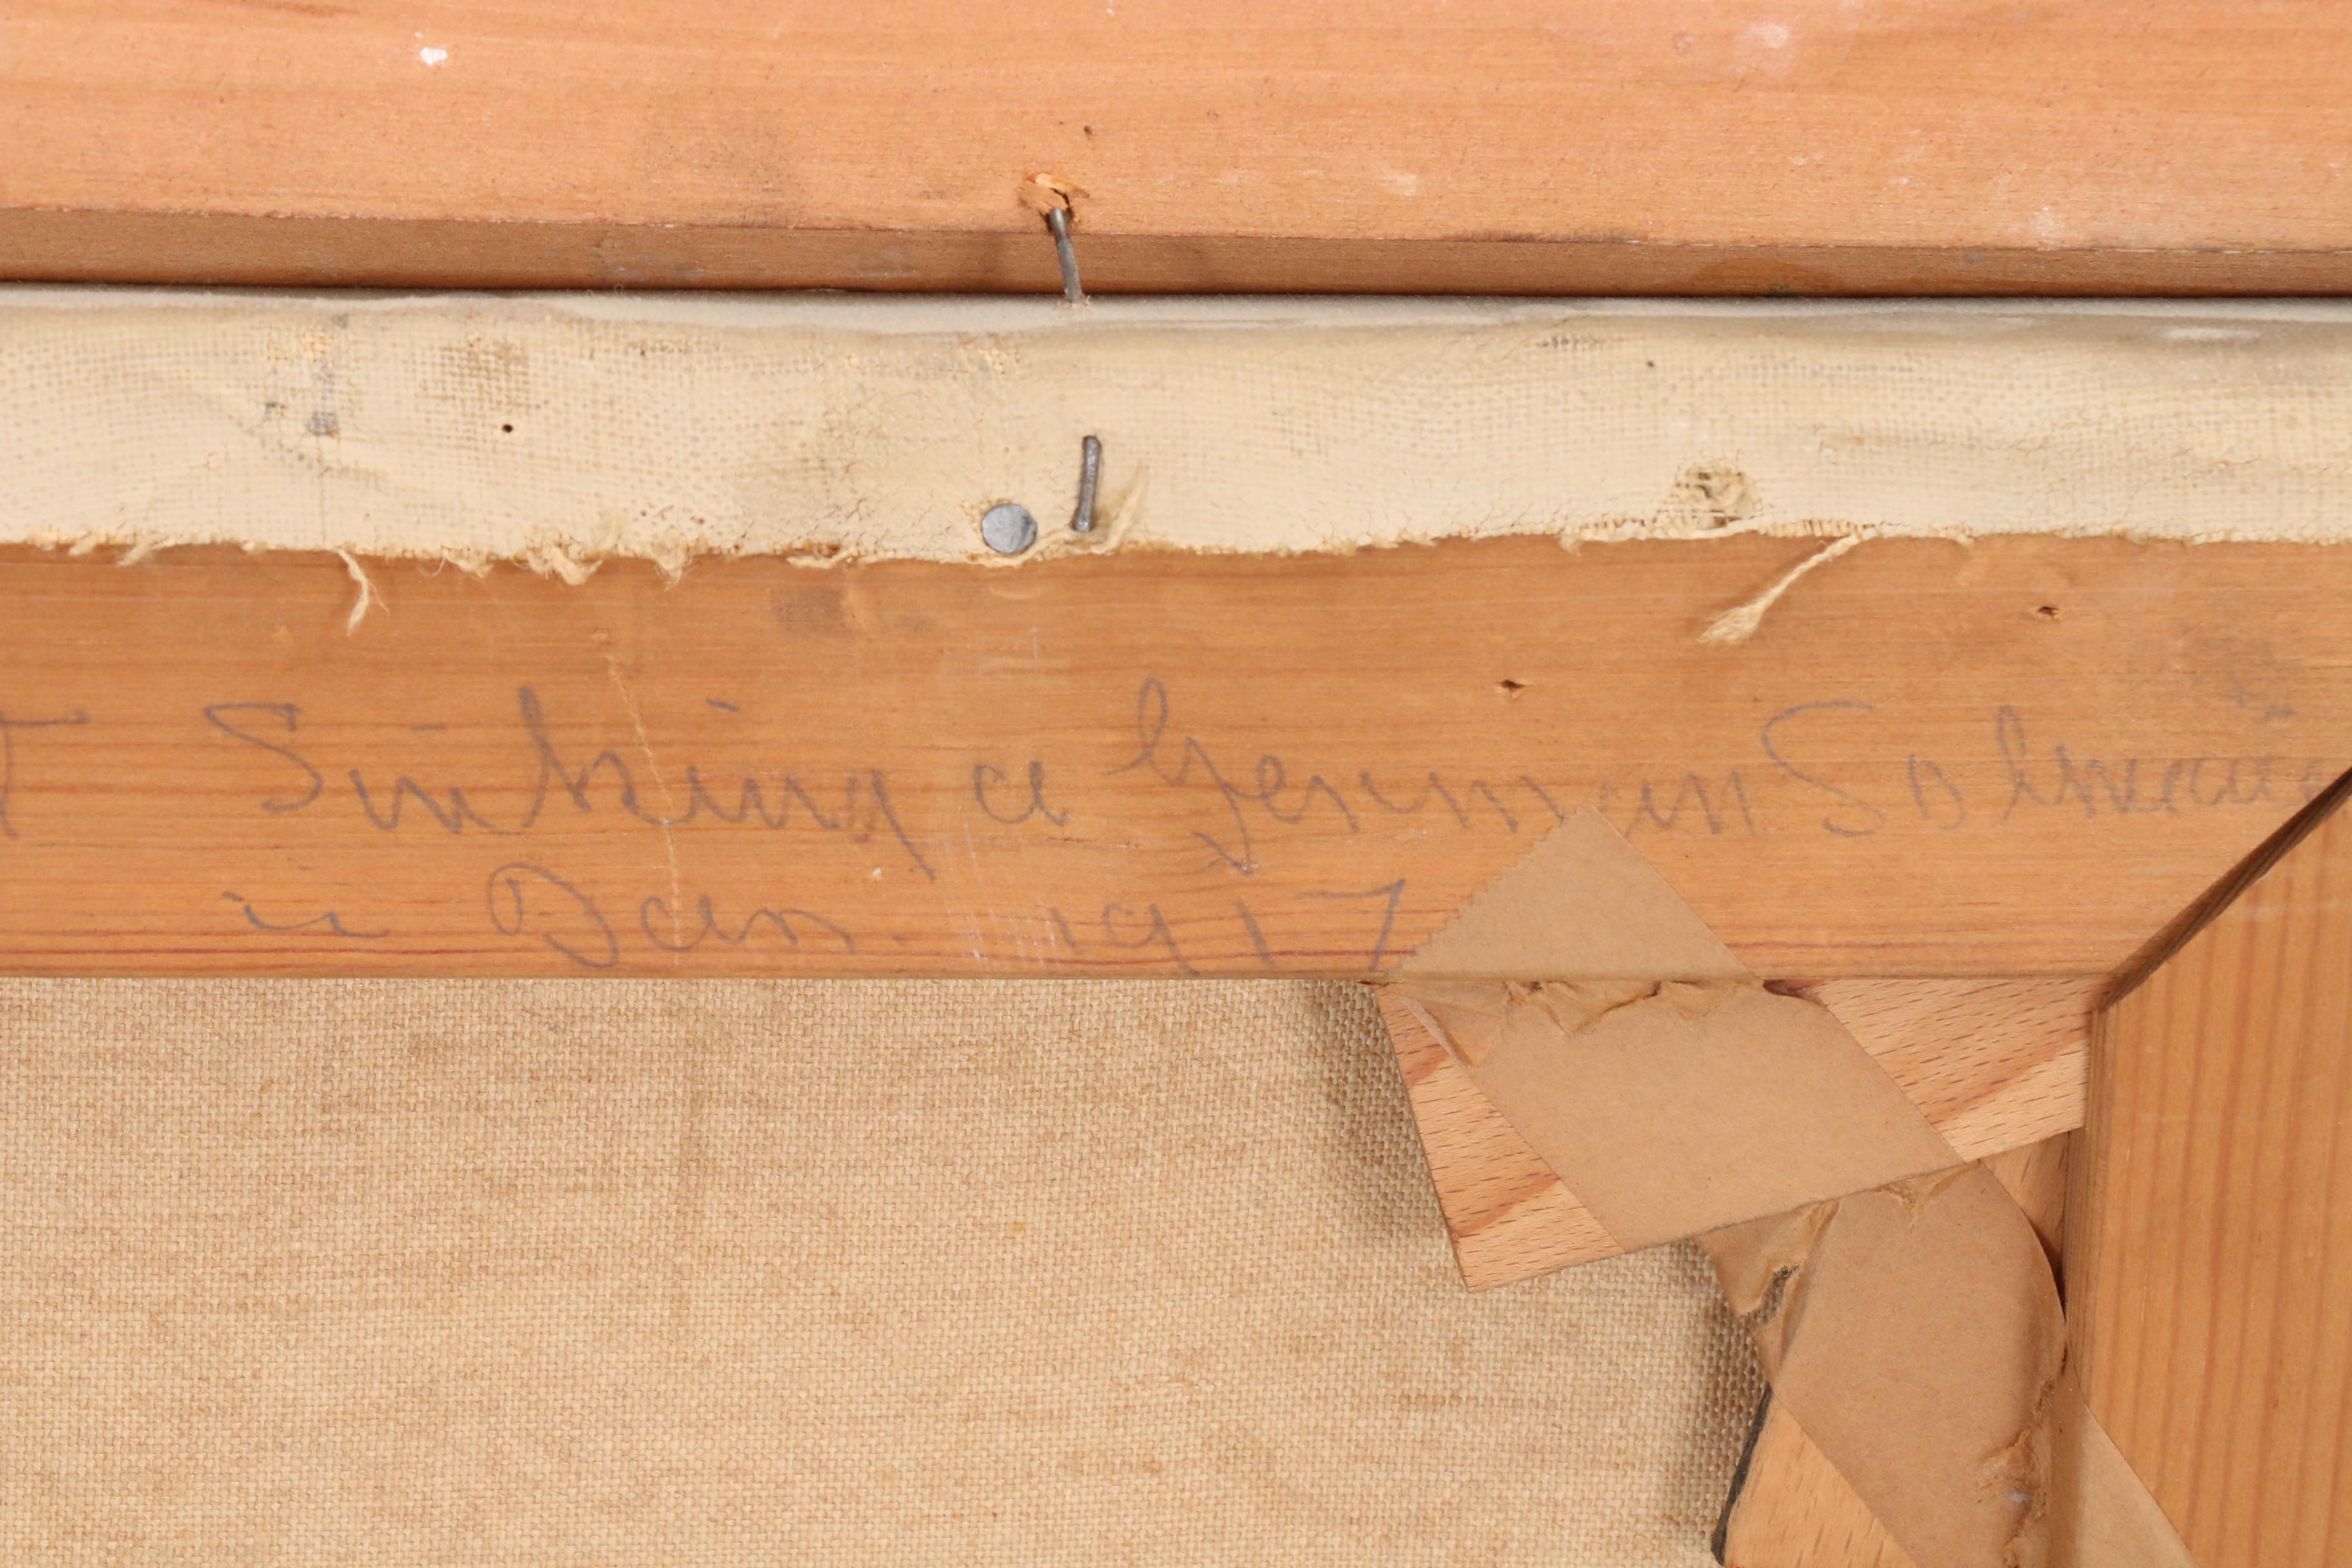 T Sinking a German Submarine
in Dec. 1917